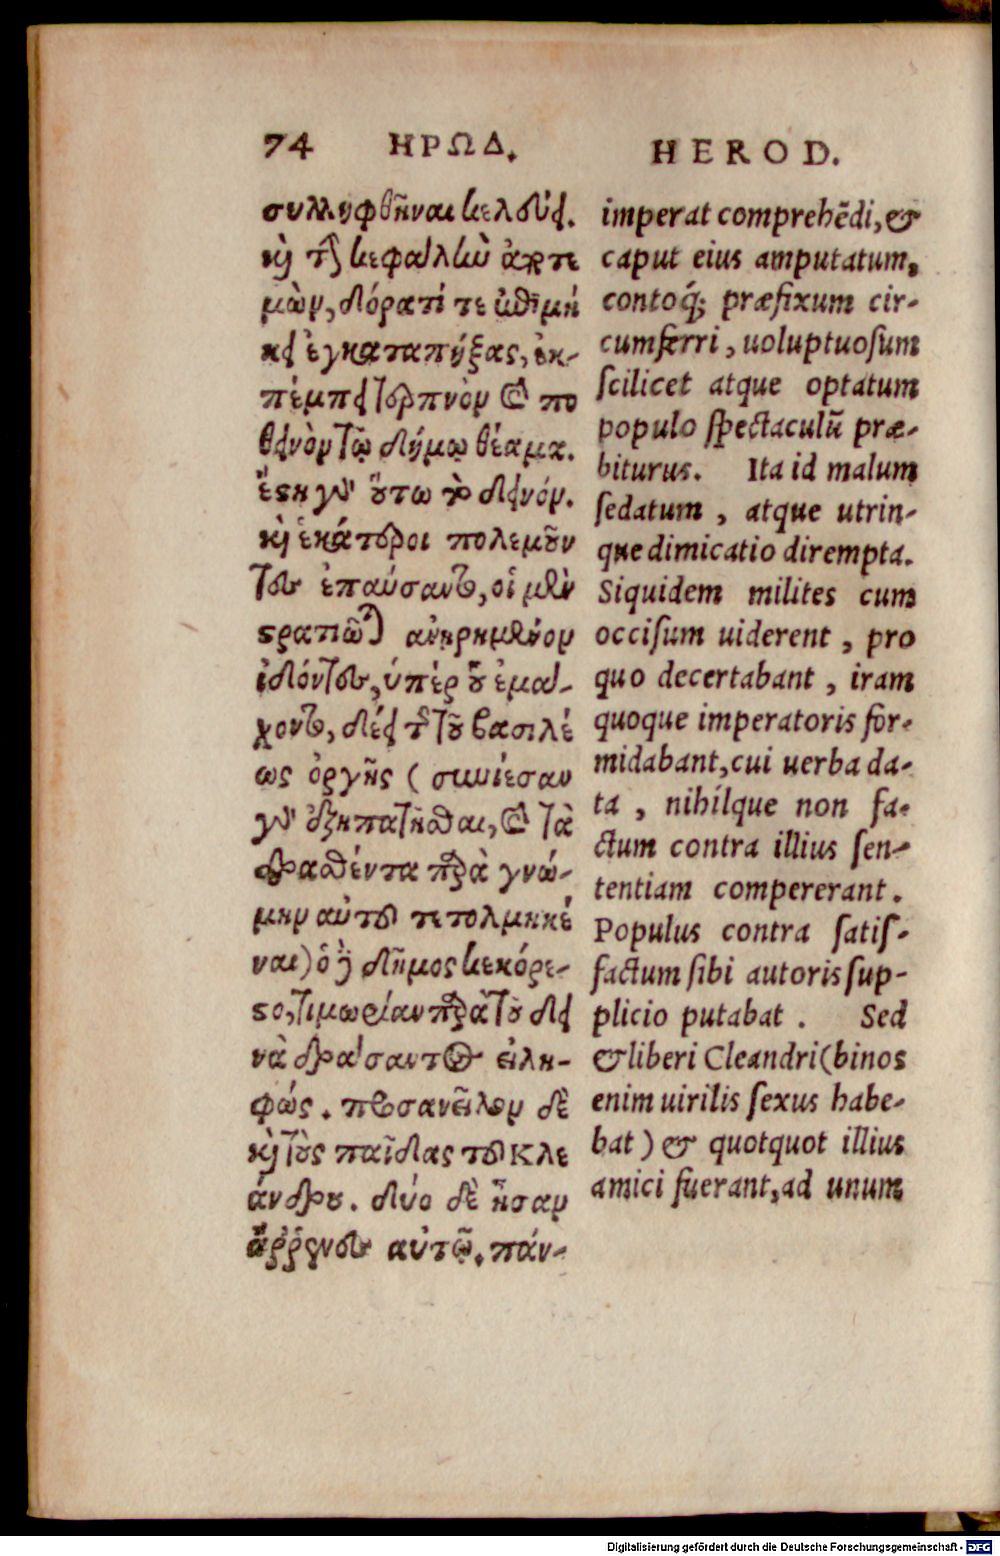 74 ΗΡΩΔ. HEROD.
συλληφθῆναι κελεύει.
καὶ τὴν κεφαλὴν ἀποτε
μὼν, δόρατί τε ἐπιμή
κει ἐγκαταπήξας, ἐκ-
πέμπει τερπνὸν καὶ πο
θεινὸν τῷ δήμῳ θέαμα.
ἔστη γοῦν οὕτω τὸ δεινόν.
καὶ ἑκάτεροι πολεμοῦν
τες ἐπαύσαντο, οἱ μὲν
στρατιῶται ἀνῃρημένον
ἰδόντες, ὑπὲρ οὗ ἐμά-
χοντο, δέει τε τῆς τοῦ βασιλέ
ως ὀργῆς (συνίεσαν
γοῦν ἐξηπατῆσθαι, καὶ τὰ
δρασθέντα παρὰ γνώ-
μην αὐτοῦ τετολμηκέ
ναι) ὁ δὲ δῆμος κεκόρε-
στο, τιμωρίαν παρὰ τοῦ δει
νὰ δράσαντος εἰλη-
φώς. προσανεῖλον δὲ
καὶ τοὺς παῖδας τοῦ Κλε
άνδρου. δύο δὲ ἦσαν
ἄῤῥενες αὐτῷ. πάν-
imperat comprehēdi, &
caput eius amputatum,
contoq́; præfixum cir-
cumferri, uoluptuoſum
ſcilicet atque optatum
populo ſpectaculū præ-
biturus. Ita id malum
ſedatum, atque utrin-
que dimicatio dirempta.
Siquidem milites cum
occiſum uiderent, pro
quo decertabant, iram
quoque imperatoris for-
midabant, cui uerba da-
ta, nihilque non fa-
ctum contra illius ſen-
tentiam compererant.
Populus contra ſatiſ-
factum ſibi autoris ſup-
plicio putabat. Sed
& liberi Cleandri (binos
enim uirilis ſexus habe-
bat) & quotquot illius
amici fuerant, ad unum
Digitalisierung gefördert durch die Deutsche Forschungsgemeinschaft - DFG